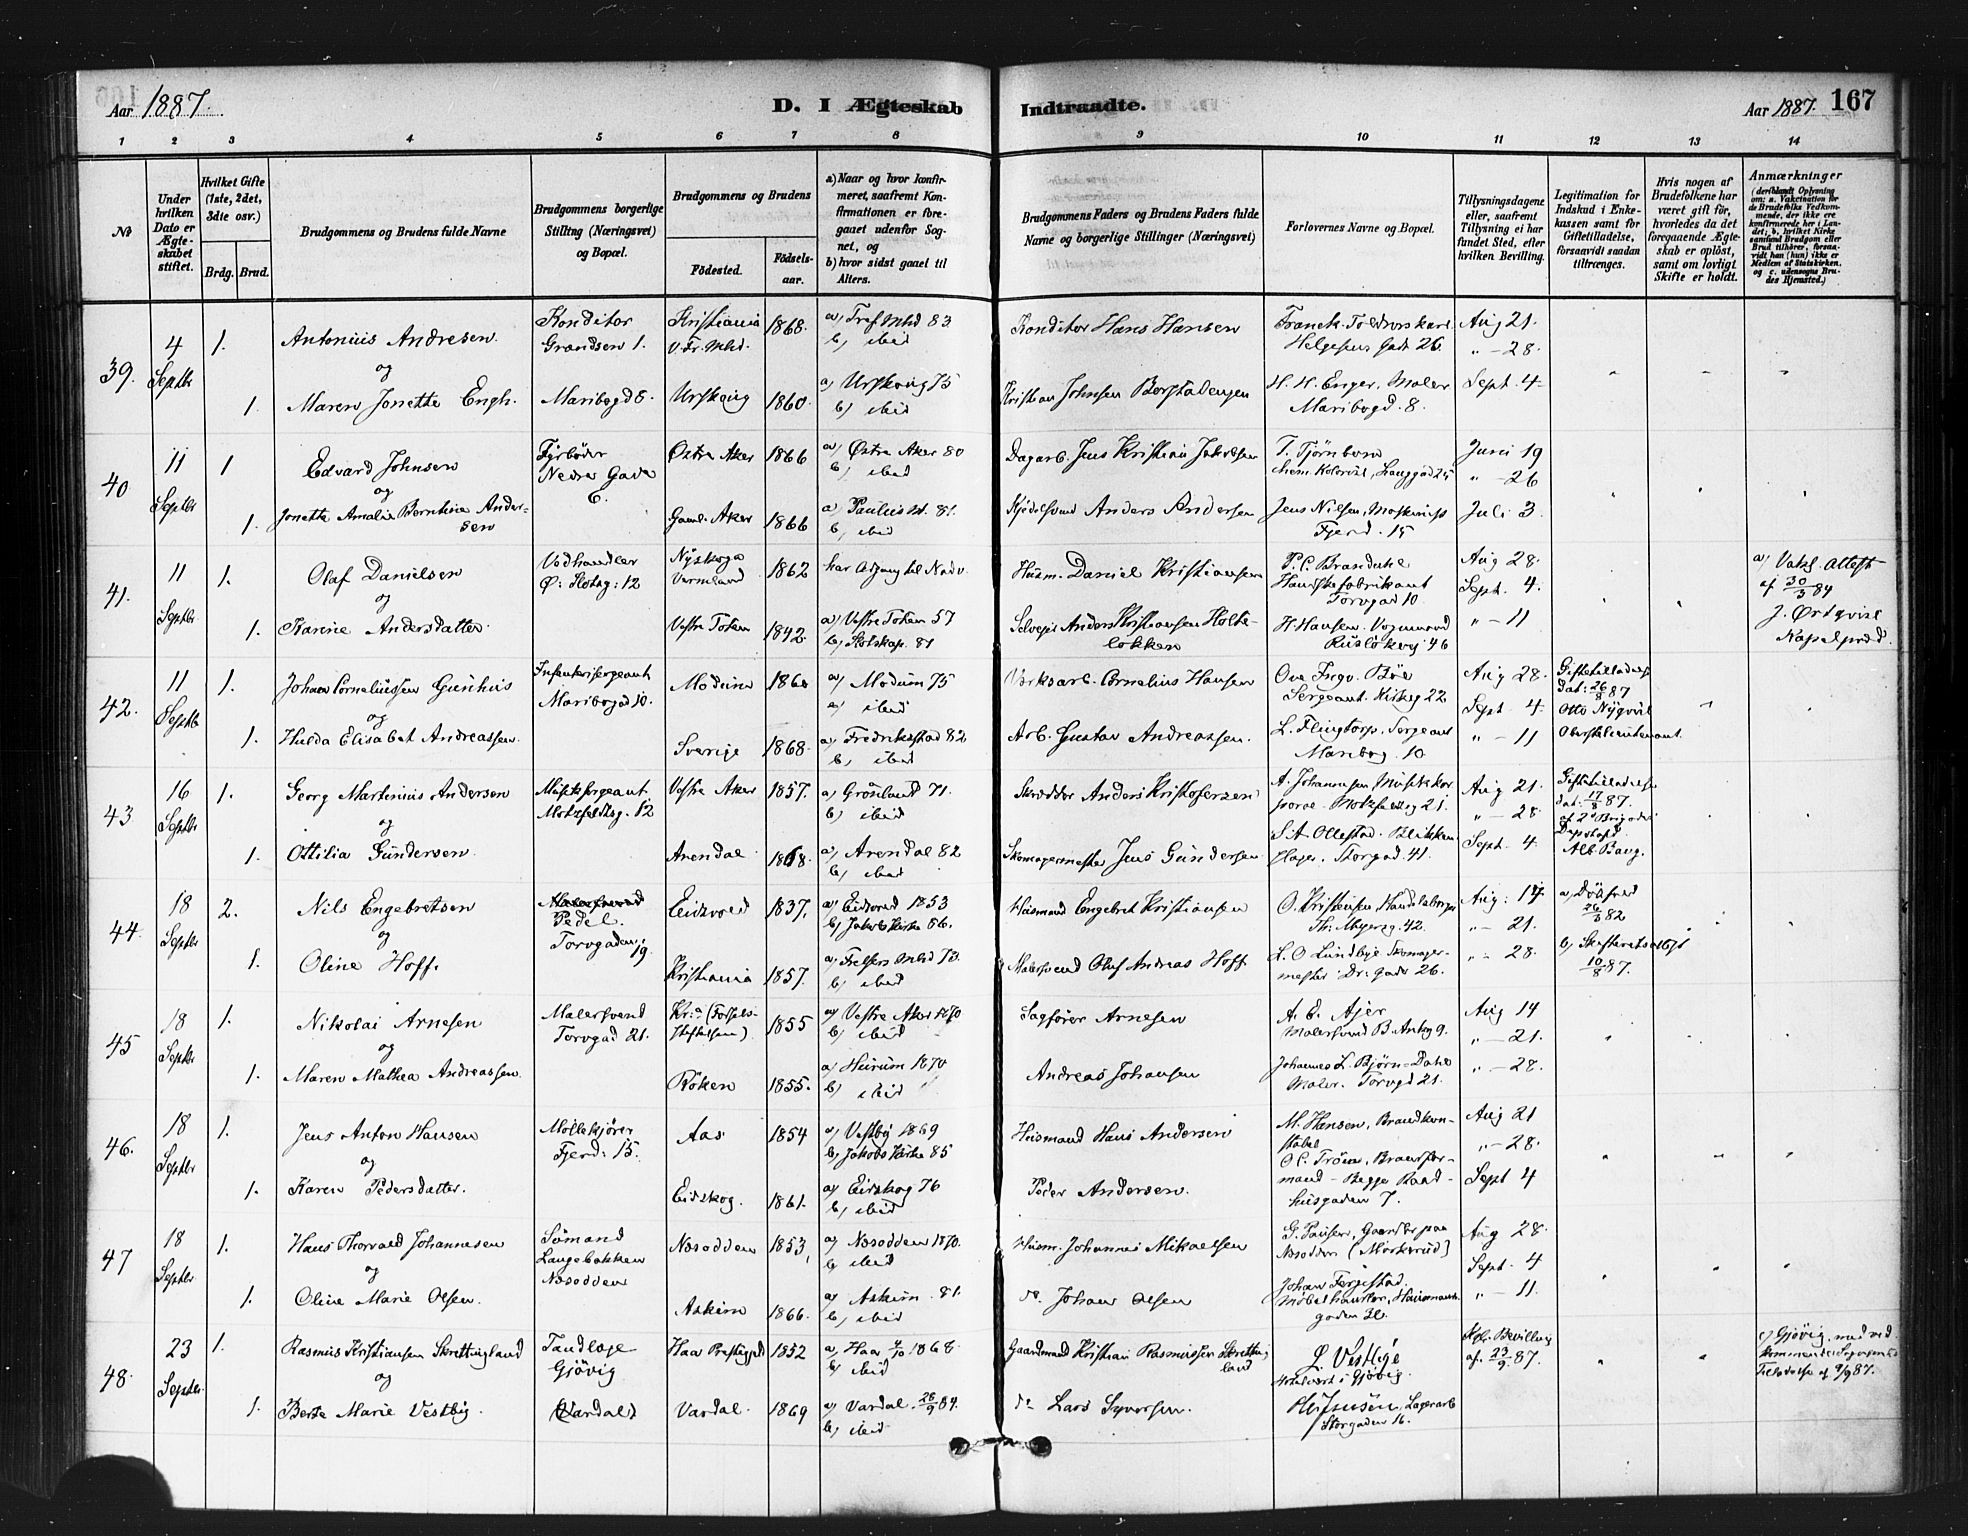 Aar 1887.
D. I Ægteskab Indtraadte.
Aar 1887. 167
1 2 3 4 5 6 7 8 9 10 11 12 13 14
No
Under hvilken Dato er Ægteskabet stiftet.
Hvilket Gifte (1ste, 2det, 3die osv.)
Brdg. Brud.
Brudgommens og Brudens fulde Navne
Brudgommens borgerlige Stilling (Næringsvei) og Bopæl.
Brudgommens og Brudens
Födested.
Födselsaar.
a) Naar og hvor konfirmeret, saafremt Konfirmationen er foregaaet udenfor Sognet, og
b) hvor sidst gaaet til Alters.
Brudgommens Faders og Brudens Faders fulde Navne og borgerlige Stillinger (Næringsvei)
Forlovernes Navne og Bopæl.
Tillysningsdagene eller, saafremt Tillysning ei har fundet Sted, efter hvilken Bevilling.
Legitimation for Indskud i Enkekassen samt for Giftetilladelse, forsaavidt saadan tiltrænges.
Hvis nogen af Brudefolkene har været gift för, hvorledes da det foregaaende Ægteskab er oplöst, samt om lovligt Skifte er holdt.
Anmærkninger
(deriblandt Oplysning om: a. Vaccination for de Brudefolks Vedkommende, der ikke ere konfirmerede her i Landet; b. hvilket Kirkesamfund Brudgom eller Brud tilhörer, forsaavidt han (hun) ikke er Medlem af Statskirken, og c. udensogns Brudes Hjemsted.)
39. 4 Septbr 1. Antonius Andresen Konditor Grændsen 1. Kristiania V. Fr. Mhd. 1868. a) Tref Mhd 83. b) ibid Konditor Hans Hansen Helgesens Gade 26. Aug 21. " - 28.
og
1. Maren Jonette Engh. Maribogd 8. Urskoug 1860. a) Urskoug 75 b) ibid Kristian Johnsen H. H. Enger, Maler Maribogd. 8. Sept. 4
40 11 Septbr 1 Edvard Johnsen Fyrböder Nedre Gade 6. Østre Aker 1866 a) Østre Aker 80 b) ibid Dagarb. Jens Kristian Jakobsen T. Tjørnbom Juni 19 " - 26
og
1. Jonette Amalia Berntine Andersen Gaml. Aker 1866 a) Paulus M. 81. b) ibid Anders Andersen Jens Nilsen, Fjerd. 15 Juli 3.
41. 11 Septbr 1. Olaf Danielsen Vedhandler Ø: Slotsg: 12 Nyskoga Vermland 1862 har Adgang til Nadv. Husm. Daniel Kristiansen P. C. Brandahl Hanskefabrikant Torvgad 10 Aug 28. Sept. 4. a) Vaks. Attest af 30/3 84 J. Ørdqvist
og
1. Karine Andersdatter. Vestre Toten 1842. a) Vestre Toten 57 b) Slotskap. 81 Selvejer Anders Kristiansen Holteløkken H. Hansen. Vognmand Rusløkvej 46 " - 11
42. 11 Septb 1. Johan Corneliussen Gunhus Infanterisergeant Maribogad 10. Modum a) Modum 75 b) ibid Verksarb. Cornelius Hansen Ove Ingv. Böe Sergeant. Aug 28. Sept. 4 Giftetilladelse dat: 26/8 87 Otto Nyqvist Oberstlieutenant
og
1. Hulda Elisabet Andreassen. Sverige 1868. a) Fredrikstad 82 b) ibid Arb. Gustav Andreassen. L. Flingtorp, Sergeant Maribog. 10. " - 11
43 16 Septbr 1. Georg Martinius Andersen Musiksergeant Motzfeldtsg. 12 Vestre Aker 1857. a) Grönland 71. b) ibid Skrædder Anders Kristofersen A. Johannesen Musikkorporal - Motzfeldtsg 21. Aug 21. " - 28 Giftetilladelse dat: 17/8 87. af 2d Brigade
og
1. Ottilia Gundersen. Arendal. 1868. a) Arendal 82 b) ibid Skomagermester Jens Gundersen S. A. Ollestad. Blikkenslager. Storgad. 41. Sept. 4.
44. 18 Septbr 2. Nils Engebretsen Pedel. Torvgaden: 19 Eidsvold 1837. a) Eidsvold 1853 b) Jakobs Kirke 86. Husmand Engebret Kristiansen O. Kristensen, Handelsborger Th. Meyersg. 42. Aug: 14. " - 21. a) Dödsfald 26/3 82
og
1. Oline Hoff. Kristiania 1857. a) Frelsers Mhd 73. b) ibid Malersvend Oluf Andreas Hoff L. O Lundbye Skomagermester Dr: gade 26. " - 28. b) Skifteretsattest 10/8 87.
45 18 Septbr 1. Nikolai Arnesen Malersvend Torvgad 21. Kr:a (Fødselsstiftelsen) 1855 a) Vestre Aker 1870 b) ibid Sagfører Arnesen A. C. Ajer Malersvend Aug 14 " - 21.
og
1. Maren Mathea Andreassen. Röken 1855. a) Hurum 1870 b) ibid Andreas Johansen Johannes L. Bjørn-Dahl Maler. Torvgd 21. " - 28.
46. 18 Septbr 1. Jens Anton Hansen Möllekjörer Fjerd: 15. Aas 1854 a) Vestby 1869 b) Jakobs Kirke 85 Husmand Hans Andersen M. Hansen, Brandkonstabel Aug 21 " - 28.
og
1. Karen Pedersdatter. Eidskog. 1861. a) Eidskog 76 b) ibid Peder Andersen. Begge Raadhusgaden 7. Sept 4
47 18 Septbr 1. Hans Thorvald Johannesen Sömand Langebakken Næsodden Næsodden 1853, a) Næsodden 1870. b) ibid Husm. Johannes Mikaelsen G. Paulsen, Gaardbr. paa Næsodden Aug 28. Sept. 4
og
1. Oline Marie Olsen. Askim 1866. a) Askim. 81. b) ibid do. Johan Olsen Johan Fergestad. Möbelhandler, Hausmannsgaden 30. " - 11.
48. 23 Septbr. 1. Rasmus Kristiansen Skrettingland Tandlæge Gjövig Haa Prestegjeld 1852 a) Haa 4/10 1868 b) ibid Gaardmand Kristian Rasmussen Skrettingland L. Vestbye i Gjövig. Kgl. Bevilling af. 23/9 87. c) Gjövig, med vedkommende Sogneprests Tilladelse af 9/9 87.
og
1. Berte Marie Vestby. (Vardal) Vardal. 1869 a) Vardal. 28/9 84. b) ibid do Lars Syversen. Lagerarb Storgaden 16.